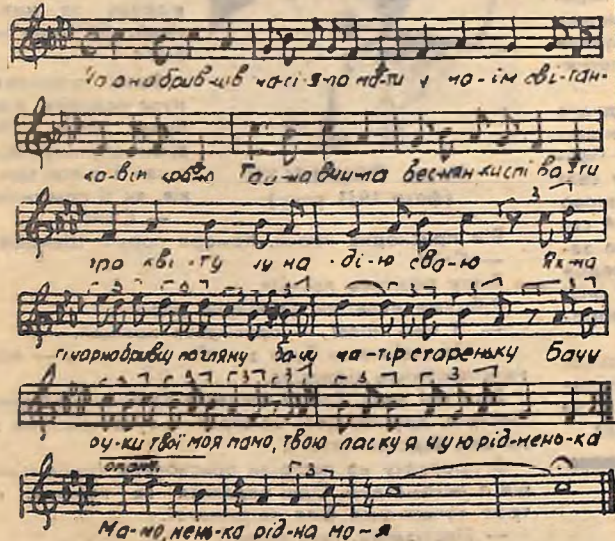 Чорнобривців насі-я-ла ма-ти у мо-їм сві-тан-
ко-вім кра-ю Та й на-вчи-ла вес-нян-ки спі ва-ти
про кві-ту чу на-ді-ю сво-ю Як на
ті чорнобривці погляну бачу ма-тір стареньку бачу
ру-ки твої моя мамо, твою ласку я чую рід-нень-ка
Ма-мо, нень-ка рід-на мо-я